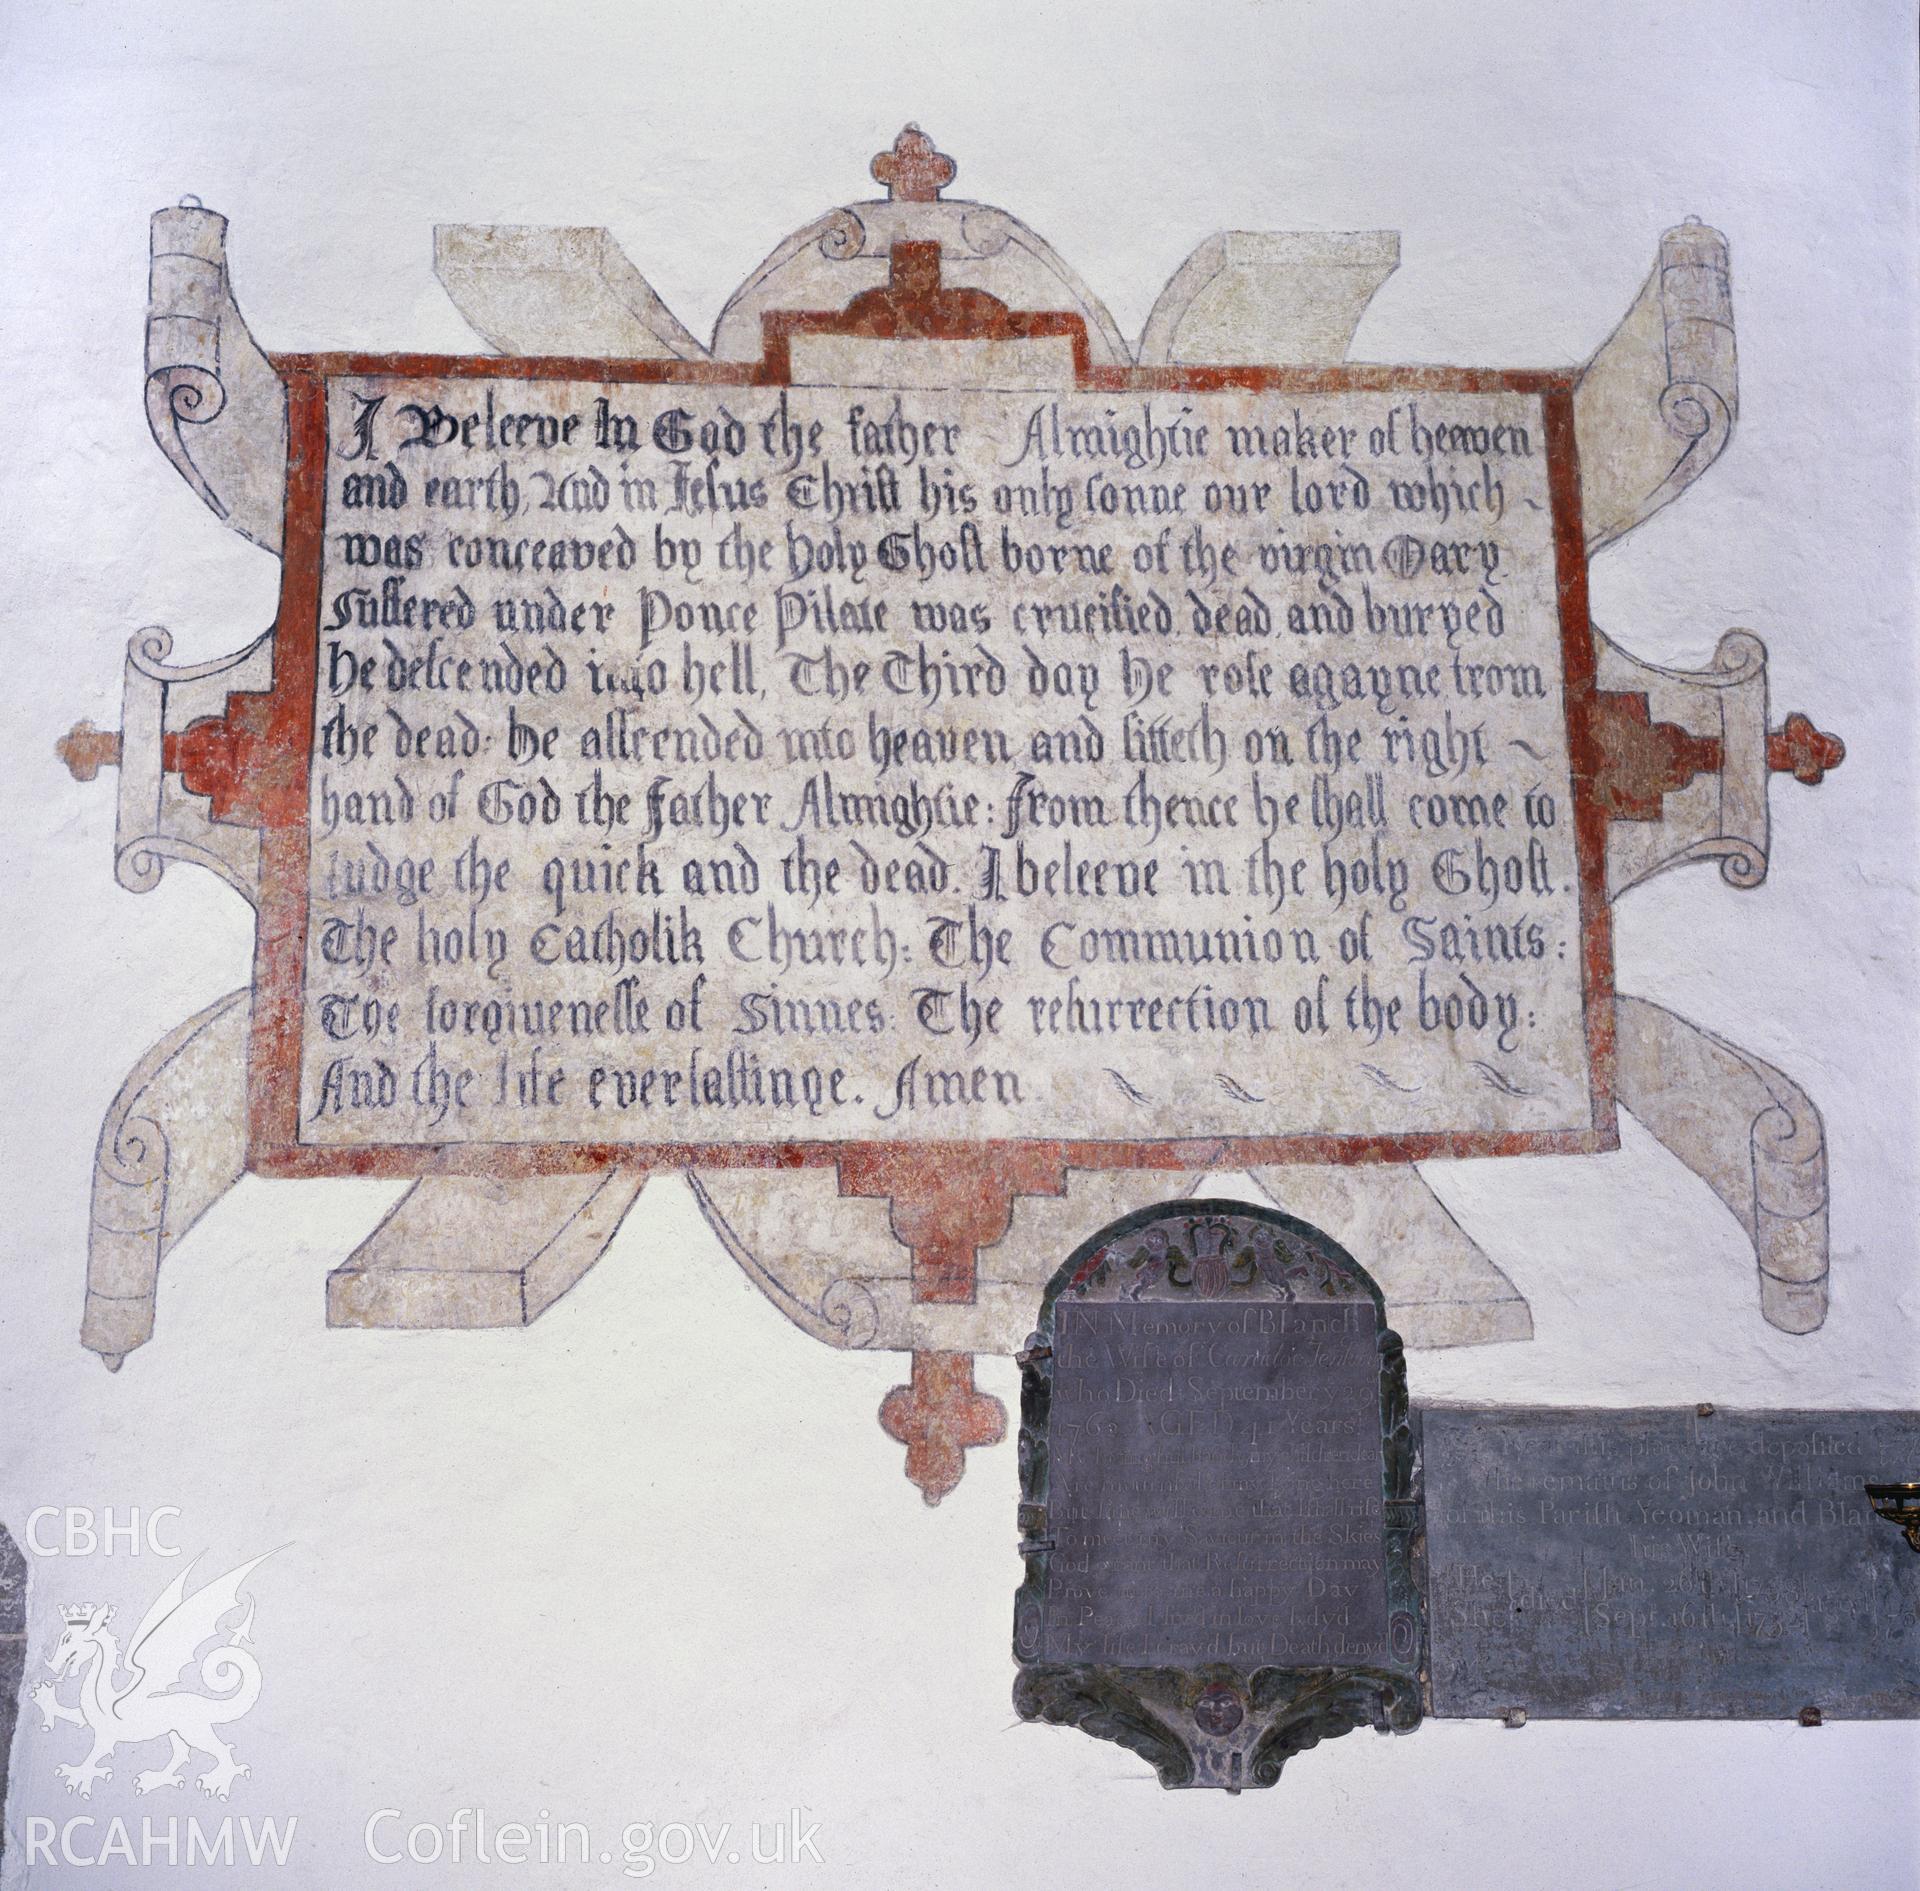 I Beleeve In God the father Almightie maker of heaven
and earth, And in Jesus Christ his only sonne our lord which ~
was conceaved by the holy Ghost borne of the virgin Mary
Suffered under Ponce Pilate was crucified, dead, and buryed
he descended into hell, The Third day he rose agayne from
the dead: he assended into heaven and sitteth on the right ~
hand of God the Father Almightie: From thence he shall come to
iudge the quick and the dead. I beleeve in the holy Ghost.
The holy Catholik Church: The Communion of Saints:
The forgivenesse of Sinnes: The resurrection of the body:
And the life everlastinge. Amen.
IN Memory of Blanch
the Wife of Caradoc Jenkin
who Died September y 29
AGED 41 Years
that I shall rise
To meet my Saviour in the Skies
God grant that Resurrection may
Prove to me a happy Day
In Peace I lived in love I dyd
My life I Crav'd but Death denyd
Near this place are deposited
the remains of John Williams
of this Parish Yeoman, and
his Wife
He died Jan. 26th
She Sept 16th
CBHC
RCAHMW Coflein.gov.uk